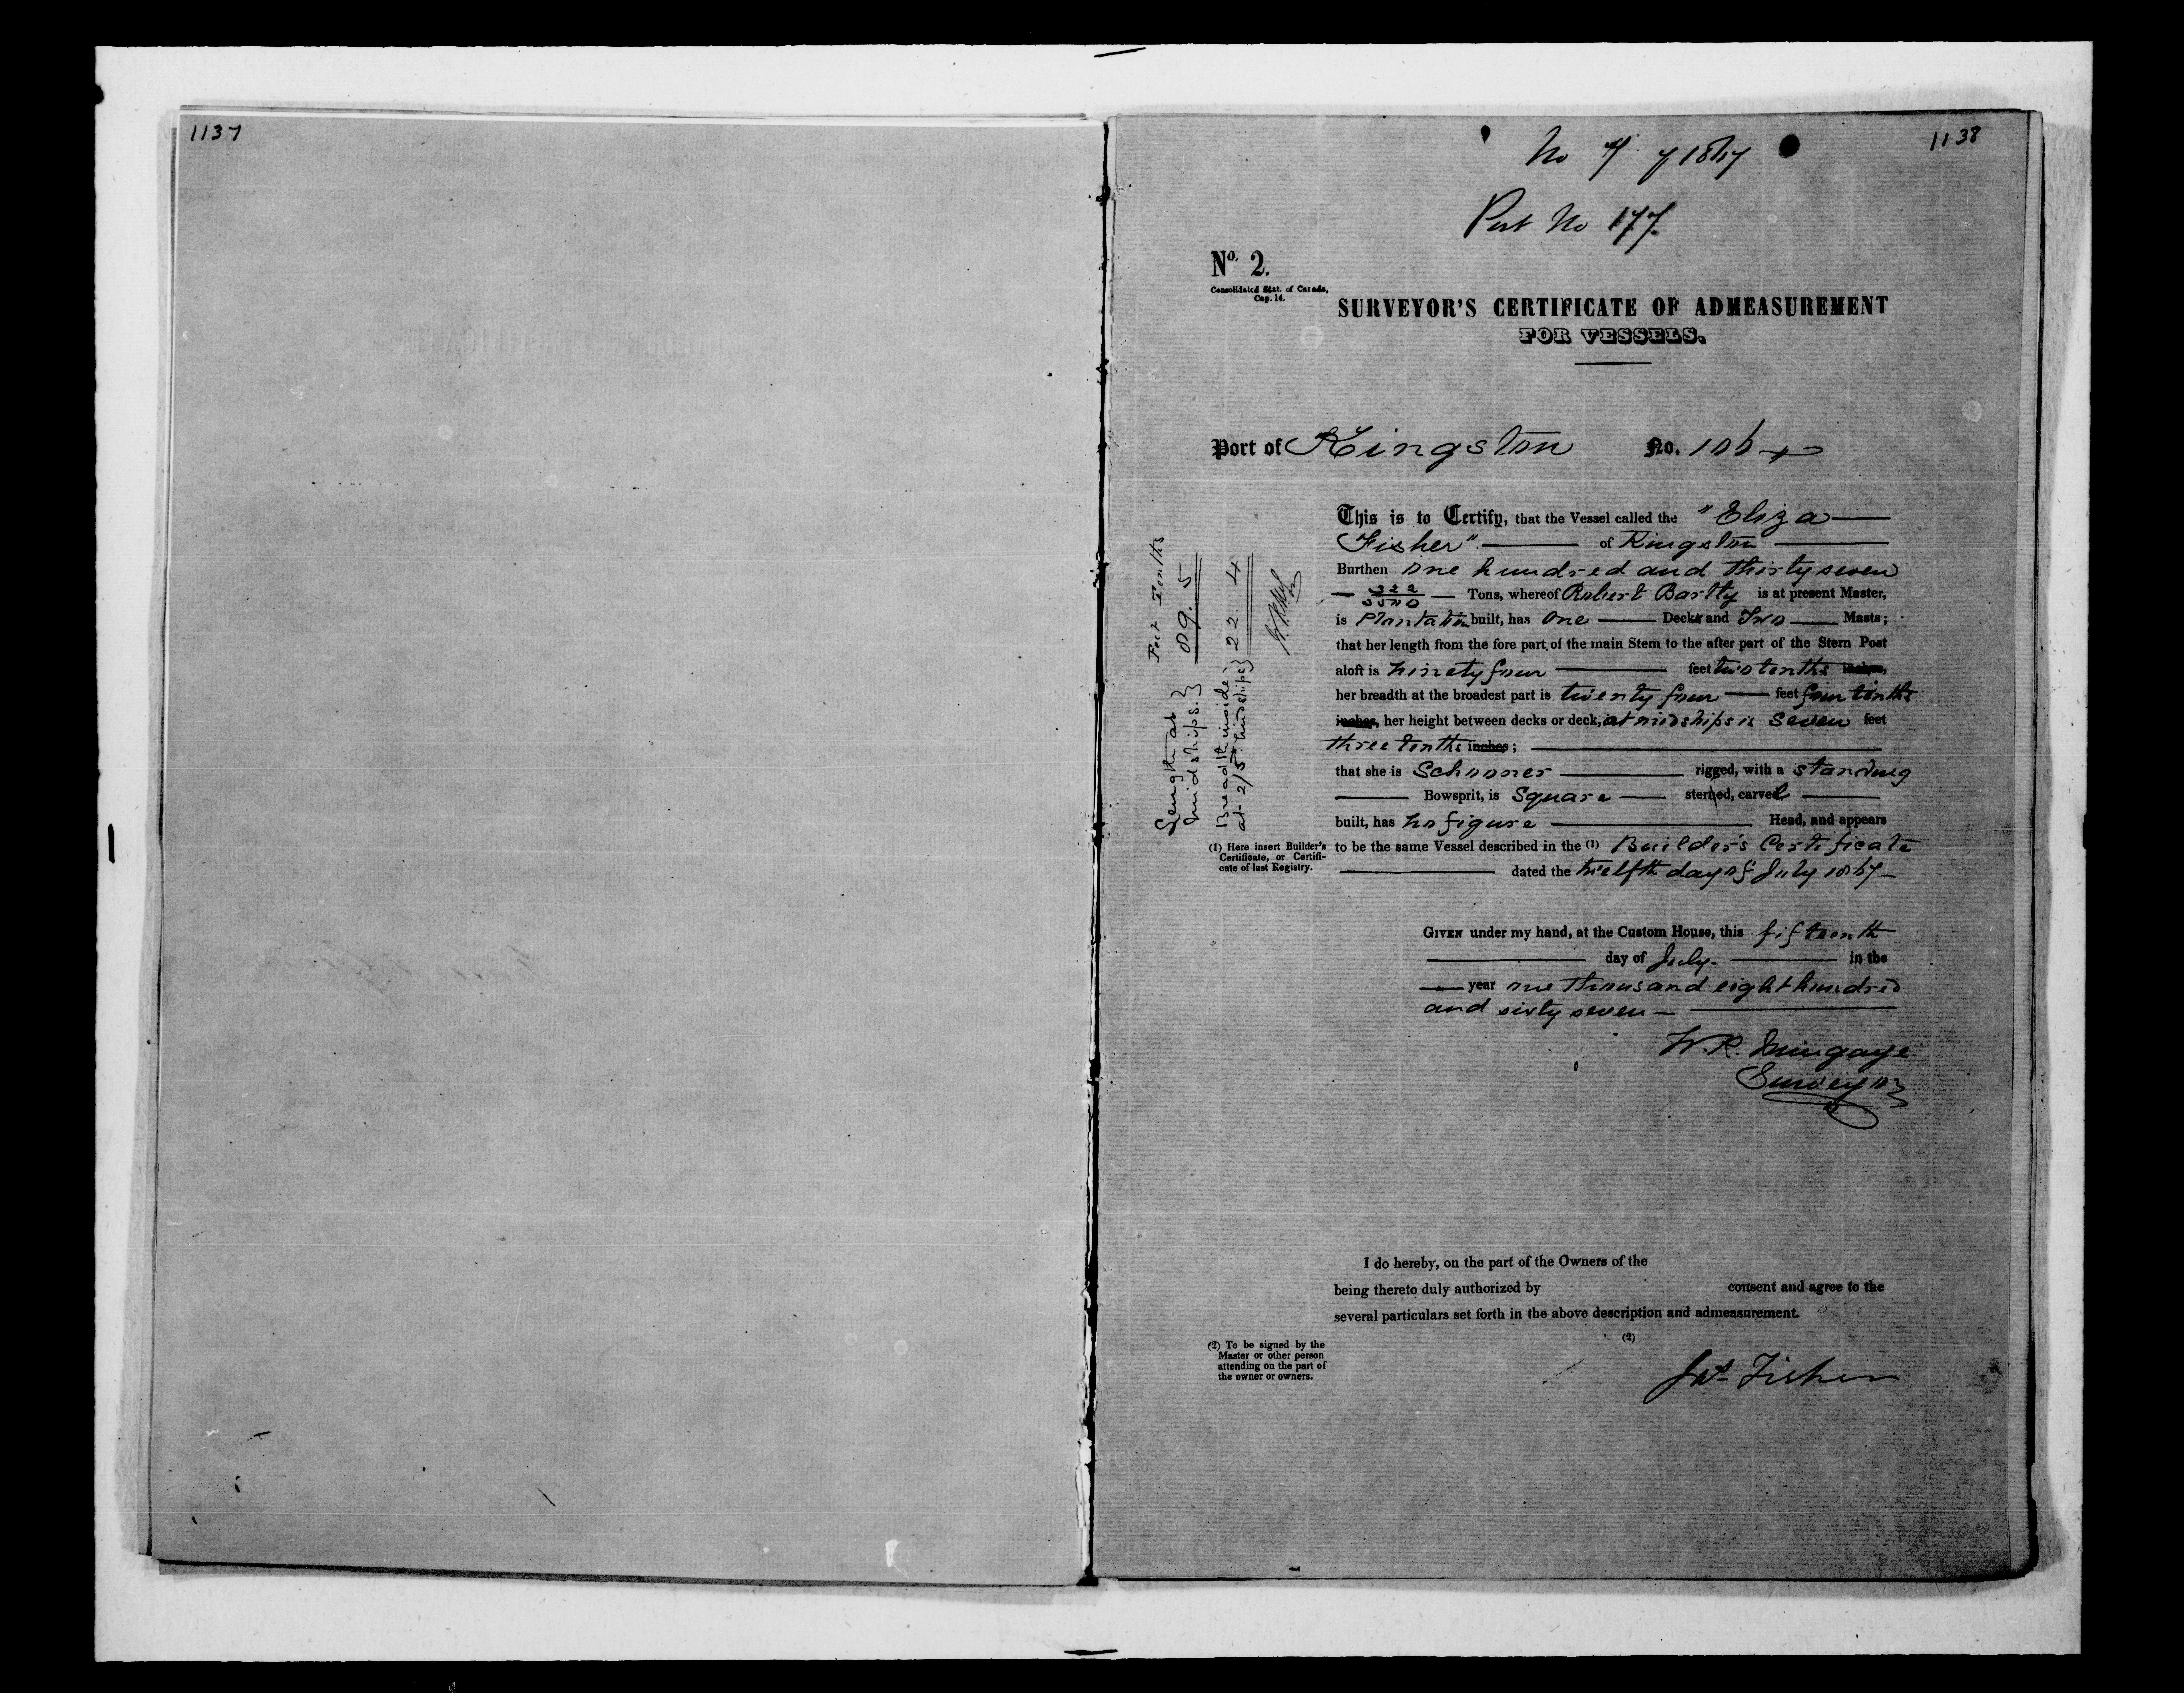 1137
1138
No 4 of 1867
Port No 177
No. 2.
Consolidated Stat. of Canada,
Cap. 14.
SURVEYOR'S CERTIFICATE OF ADMEASUREMENT
FOR VESSELS.
Port of Kingston No. 106
This is to Certify, that the Vessel called the "Eliza
Fisher" of Kingston
Burthen One hundred and thirty seven
322/3500 Tons, whereof Robert Bartly is at present Master,
is Plantation built, has One Decks and Two Masts;
that her length from the fore part of the main Stem to the after part of the Stern Post
aloft is ninety four feet two tenths inches,
her breadth at the broadest part is twenty four feet four tenths
inches, her height between decks or deck, at midships is Seven feet
three tenths inches;
that she is Schooner rigged, with a standing
Bowsprit, is Square sterned, carvel
built, has no figure Head, and appears
to be the same Vessel described in the (1) Builder's Certificate
dated the twelfth day of July 1867
Feet Tenths
Length at
midships } 89.5
Breadth inside
at 2/5 midships } 22 4
(1) Here insert Builder's
Certificate, or Certifi-
cate of last Registry.
GIVEN under my hand, at the Custom House, this fifteenth
day of July in the
year one thousand eight hundred
and sixty seven
W. R. Mingaye
Surveyor
I do hereby, on the part of the Owners of the
being thereto duly authorized by consent and agree to the
several particulars set forth in the above description and admeasurement.
(2)
(2) To be signed by the
Master or other person
attending on the part of
the owner or owners.
Jas Fisher